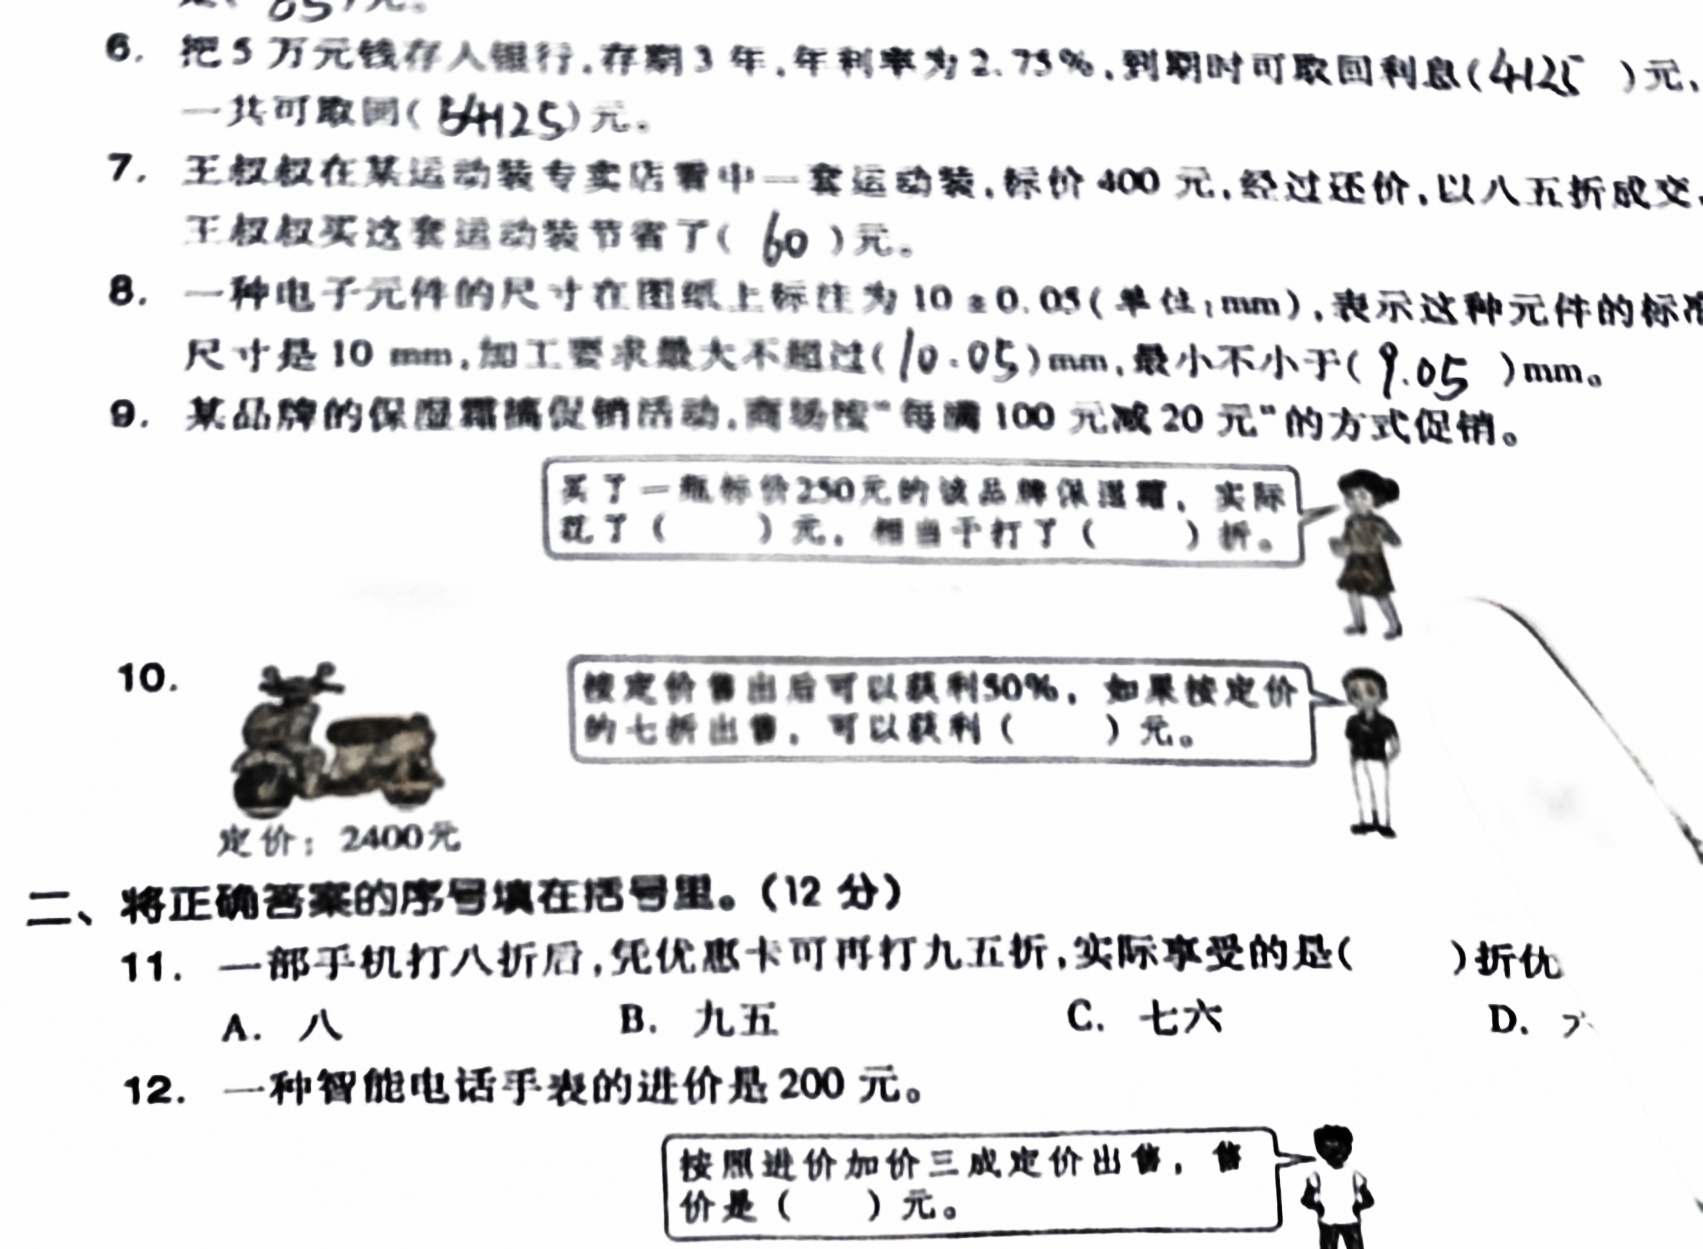 6. 把5万元钱存入银行,存期3年,年利率为2.75%,到期时可取回利息(4125)元,
一共可取回(54125)元。
7. 王叔叔在某运动装专卖店看中一套运动装,标价400元,经过还价,以八五折成交,
王叔叔买这套运动装节省了(60)元。
8. 一种电子元件的尺寸在图纸上标注为10±0.05(单位:mm),表示这种元件的标准
尺寸是10 mm,加工要求最大不超过(10.05)mm,最小不小于(9.05)mm。
9. 某品牌的保湿霜搞促销活动,商场按“每满100元减20元”的方式促销。
买了一瓶标价250元的该品牌保湿霜,实际
花了( )元,相当于打了( )折。
10.
按定价售出后可以获利50%,如果按定价
的七折出售,可以获利( )元。
定价:2400元
二、将正确答案的序号填在括号里。(12分)
11. 一部手机打八折后,凭优惠卡可再打九五折,实际享受的是( )折优
A. 八 B. 九五 C. 七六 D.
12. 一种智能电话手表的进价是200元。
按照进价加价三成定价出售,售
价是( )元。